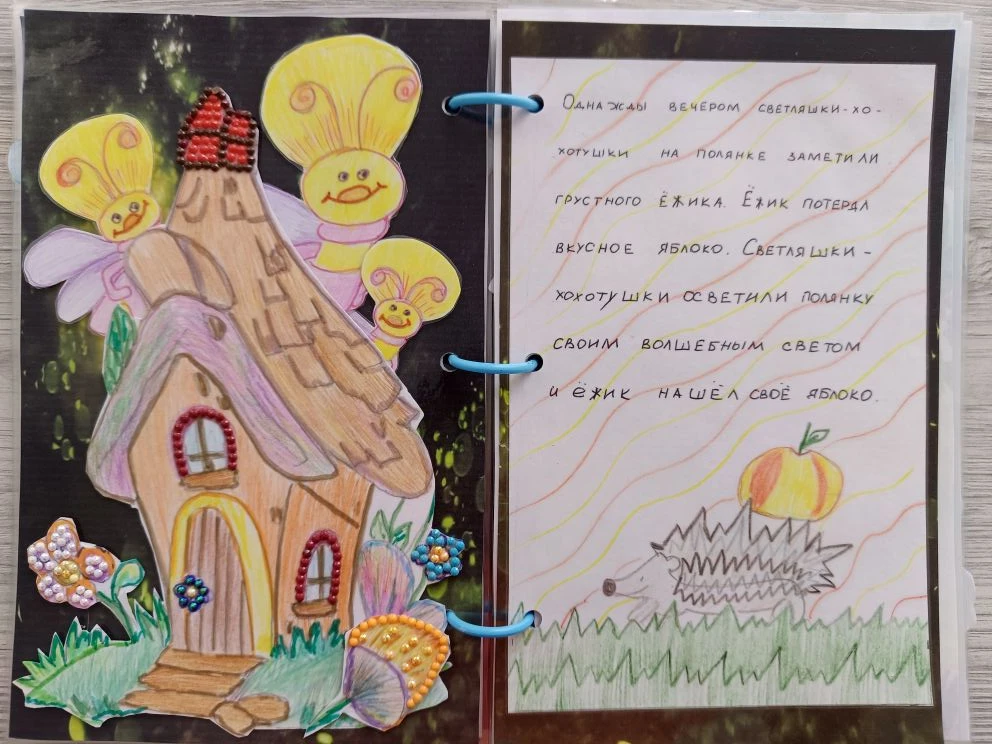 Однажды вечером светляшки-хо-
хотушки на полянке заметили
грустного ёжика. Ёжик потерял
вкусное яблоко. Светляшки-
хохотушки осветили полянку
своим волшебным светом
и ёжик нашёл своё яблоко.